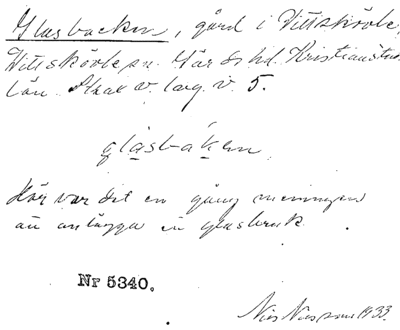 Glasbacken, gård i Vittskövle,
Vittskövle sn. Gärds hd. Kristianstads
län. Skrat v. larg. v. 5.
glasbáken
Här var det en gång meningen
att anlägga en glasbruk.
Nr 5340.
Nils Nilsson 1933.